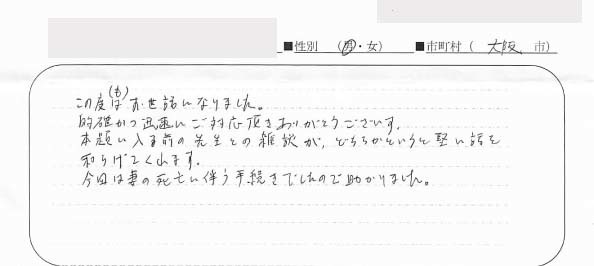 ■性別 (男・女) ■市町村( 大阪 市)
この度は(も)お世話になりました。
的確かつ迅速にご対応頂きありがとうございます。
本題に入る前の先生との雑談が、どちらかというと堅い話を
和らげてくれます。
今回は妻の死亡に伴う手続きでしたので助かりました。